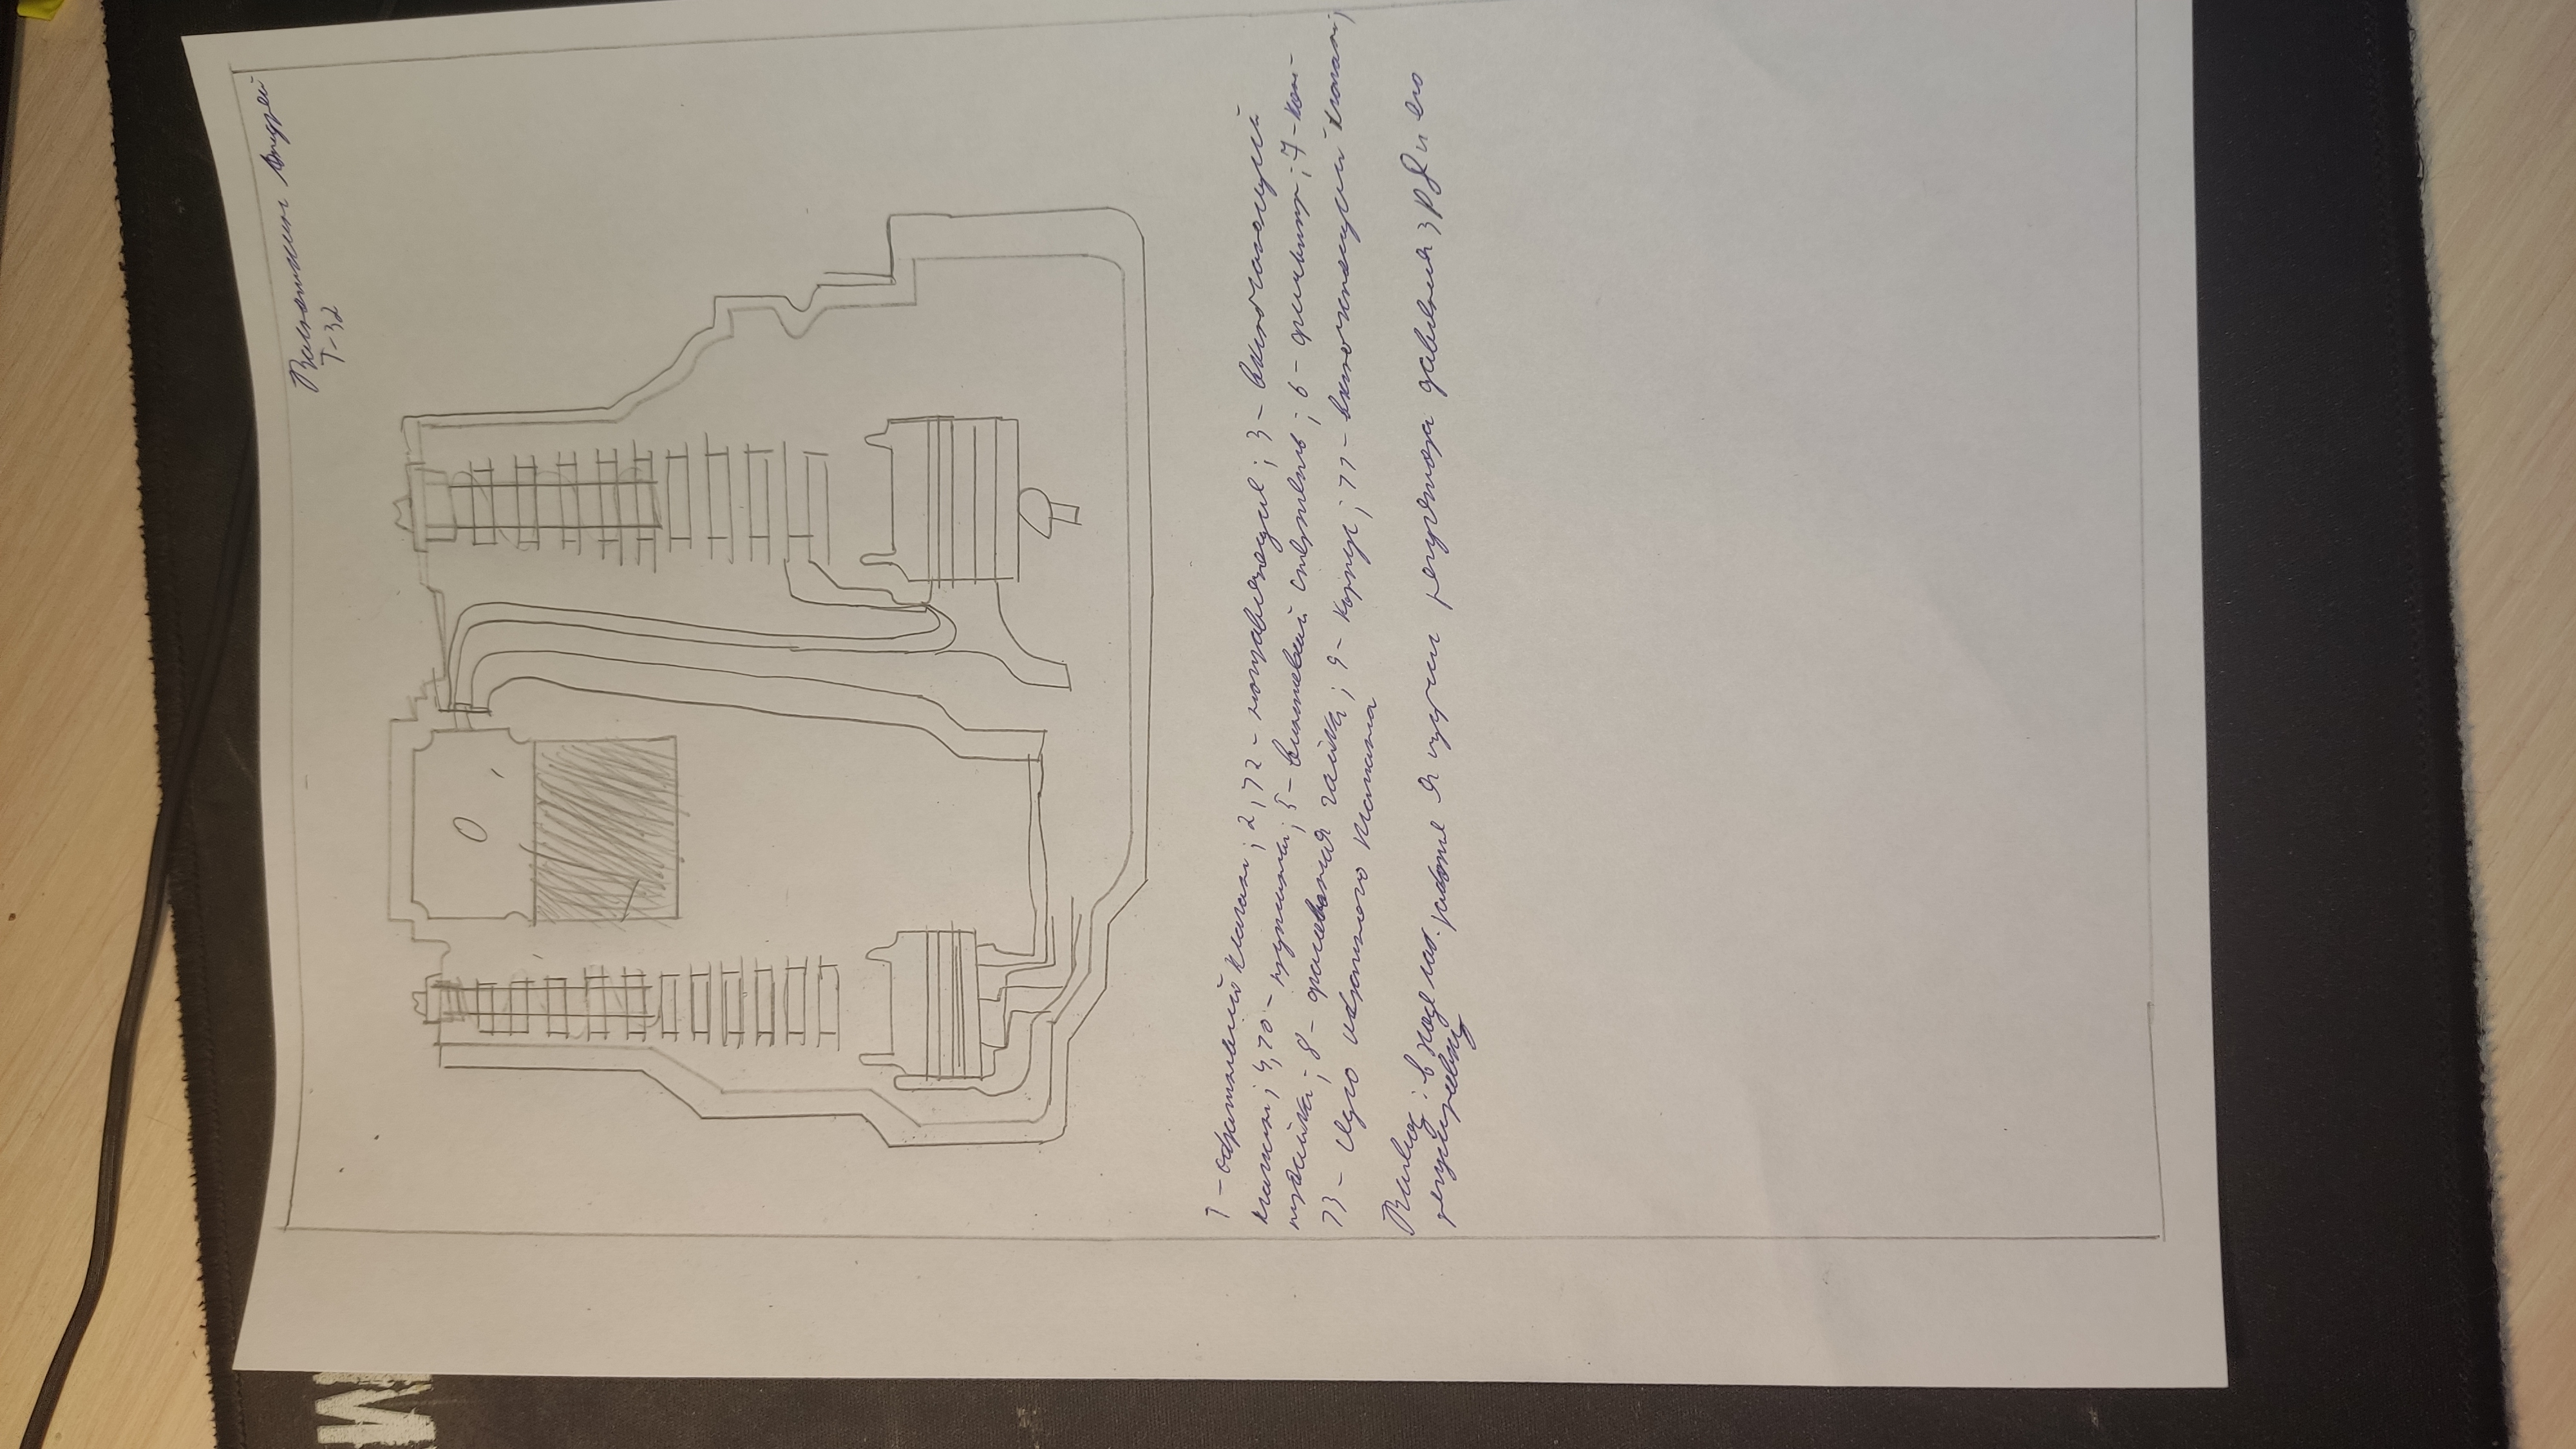 Андрей
Т-32
1 - обратный клапан; 2, 12 - направляющие; 3 - выключающий
клапан; 4, 10 - пружины; 5 - винтовой стержень; 6 - фильтр; 7 - кон-
тргайка; 8 - фасованная гайка; 9 - корпус; 11 - включающий клапан;
13 - седло обратного клапана
Вывод: в ходе лаб. работе я изучил регулятора давления 3РД и его
регулировку
М